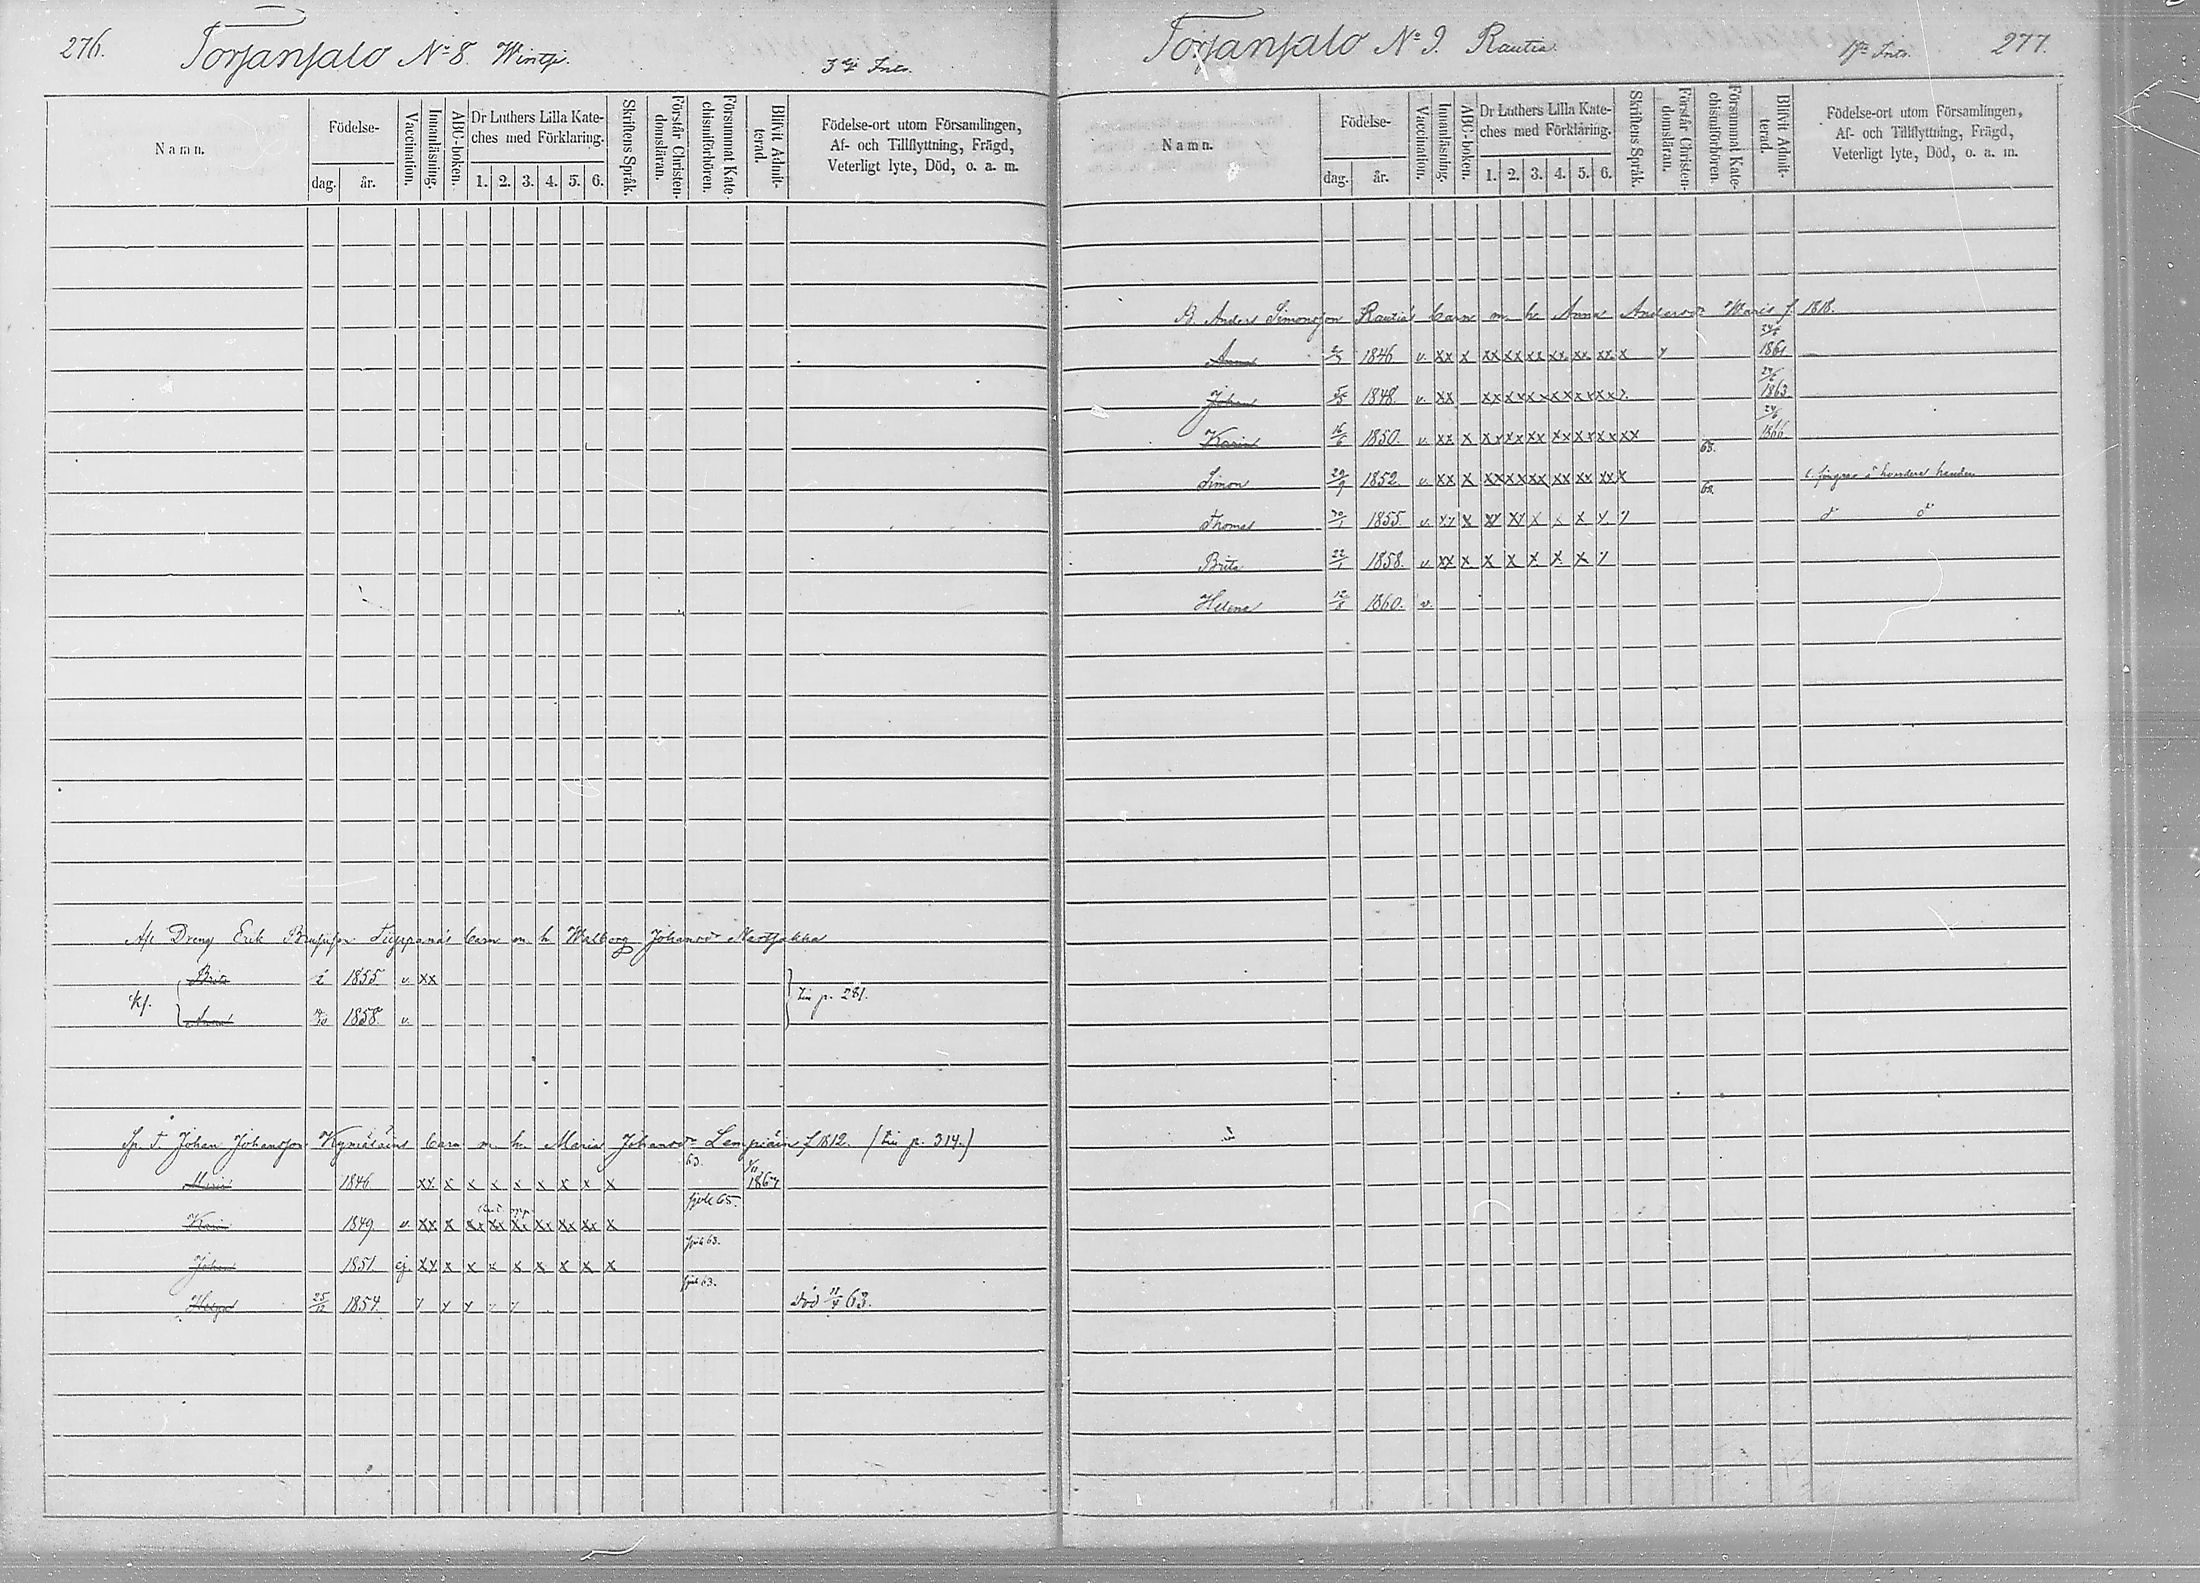 276.
Torsansalo No 8. Wintsi.
Namn.
Födelse-
dag.
år.
Vaccination.
Innanläsning.
ABC-boken.
Dr Luthers Lilla Kate-
ches med Förklaring.
1. 2. 3. 4. 5. 6.
Skriftens Språk.
Förstår Christen-
domsläran.
Försummat Kate-
chismiförhören.
Blifvit Admit-
terad.
Födelse-ort utom Församlingen,
Af- och Tillflyttning, Frägd,
Veterligt lyte, Död, o. a. m.
Dreng Erik barn m. h. Walborg Johansdr
Brita 1855 v. xx
Anna 1858. v.
p. 281.
Johan Johansson Kymäläins barn m. h. Maria Johansdr Lempiäin f. 1812. p. 314.)
Maria 1846 xx x x x x x x x x 63. 1867
Karin 1849 v. xx x xx xx xx xx xx xx x 65.
Johan 1851 ej. xx x x x x x x x x 63.
Helga 25/12 1854 63. död 11/4 63.
Torsansalo No 9. Rautia.
277.
Namn.
Födelse-
dag.
år.
Vaccination.
Innanläsning.
ABC-boken.
Dr Luthers Lilla Kate-
ches med Förklaring.
1. 2. 3. 4. 5. 6.
Skriftens Språk.
Förstår Christen-
domsläran.
Försummat Kate-
chismiförhören.
Blifvit Admit-
terad.
Födelse-ort utom Församlingen,
Af- och Tillflyttning, Frägd,
Veterligt lyte, Död, o. a. m.
B. Anders Simonsson Rautias barn m. h. Anna Andersdr f. 1818.
Anna 1846 v. xx x xx xx xx xx xx xx x 1861
Johan 1848. v. xx xx xx xx xx xx xx 24/6 1863
Karin 16/6 1850. v. xx x xx xx xx xx xx xx xx 68. 24/6 1866.
Simon 29/9 1852. v. xx x xx xx xx xx xx xx x
Thomas 30/1 1855. v. xx x
Brita 22/1 1858. v. xx x x x x x x
Helena 12/8 1860. v.